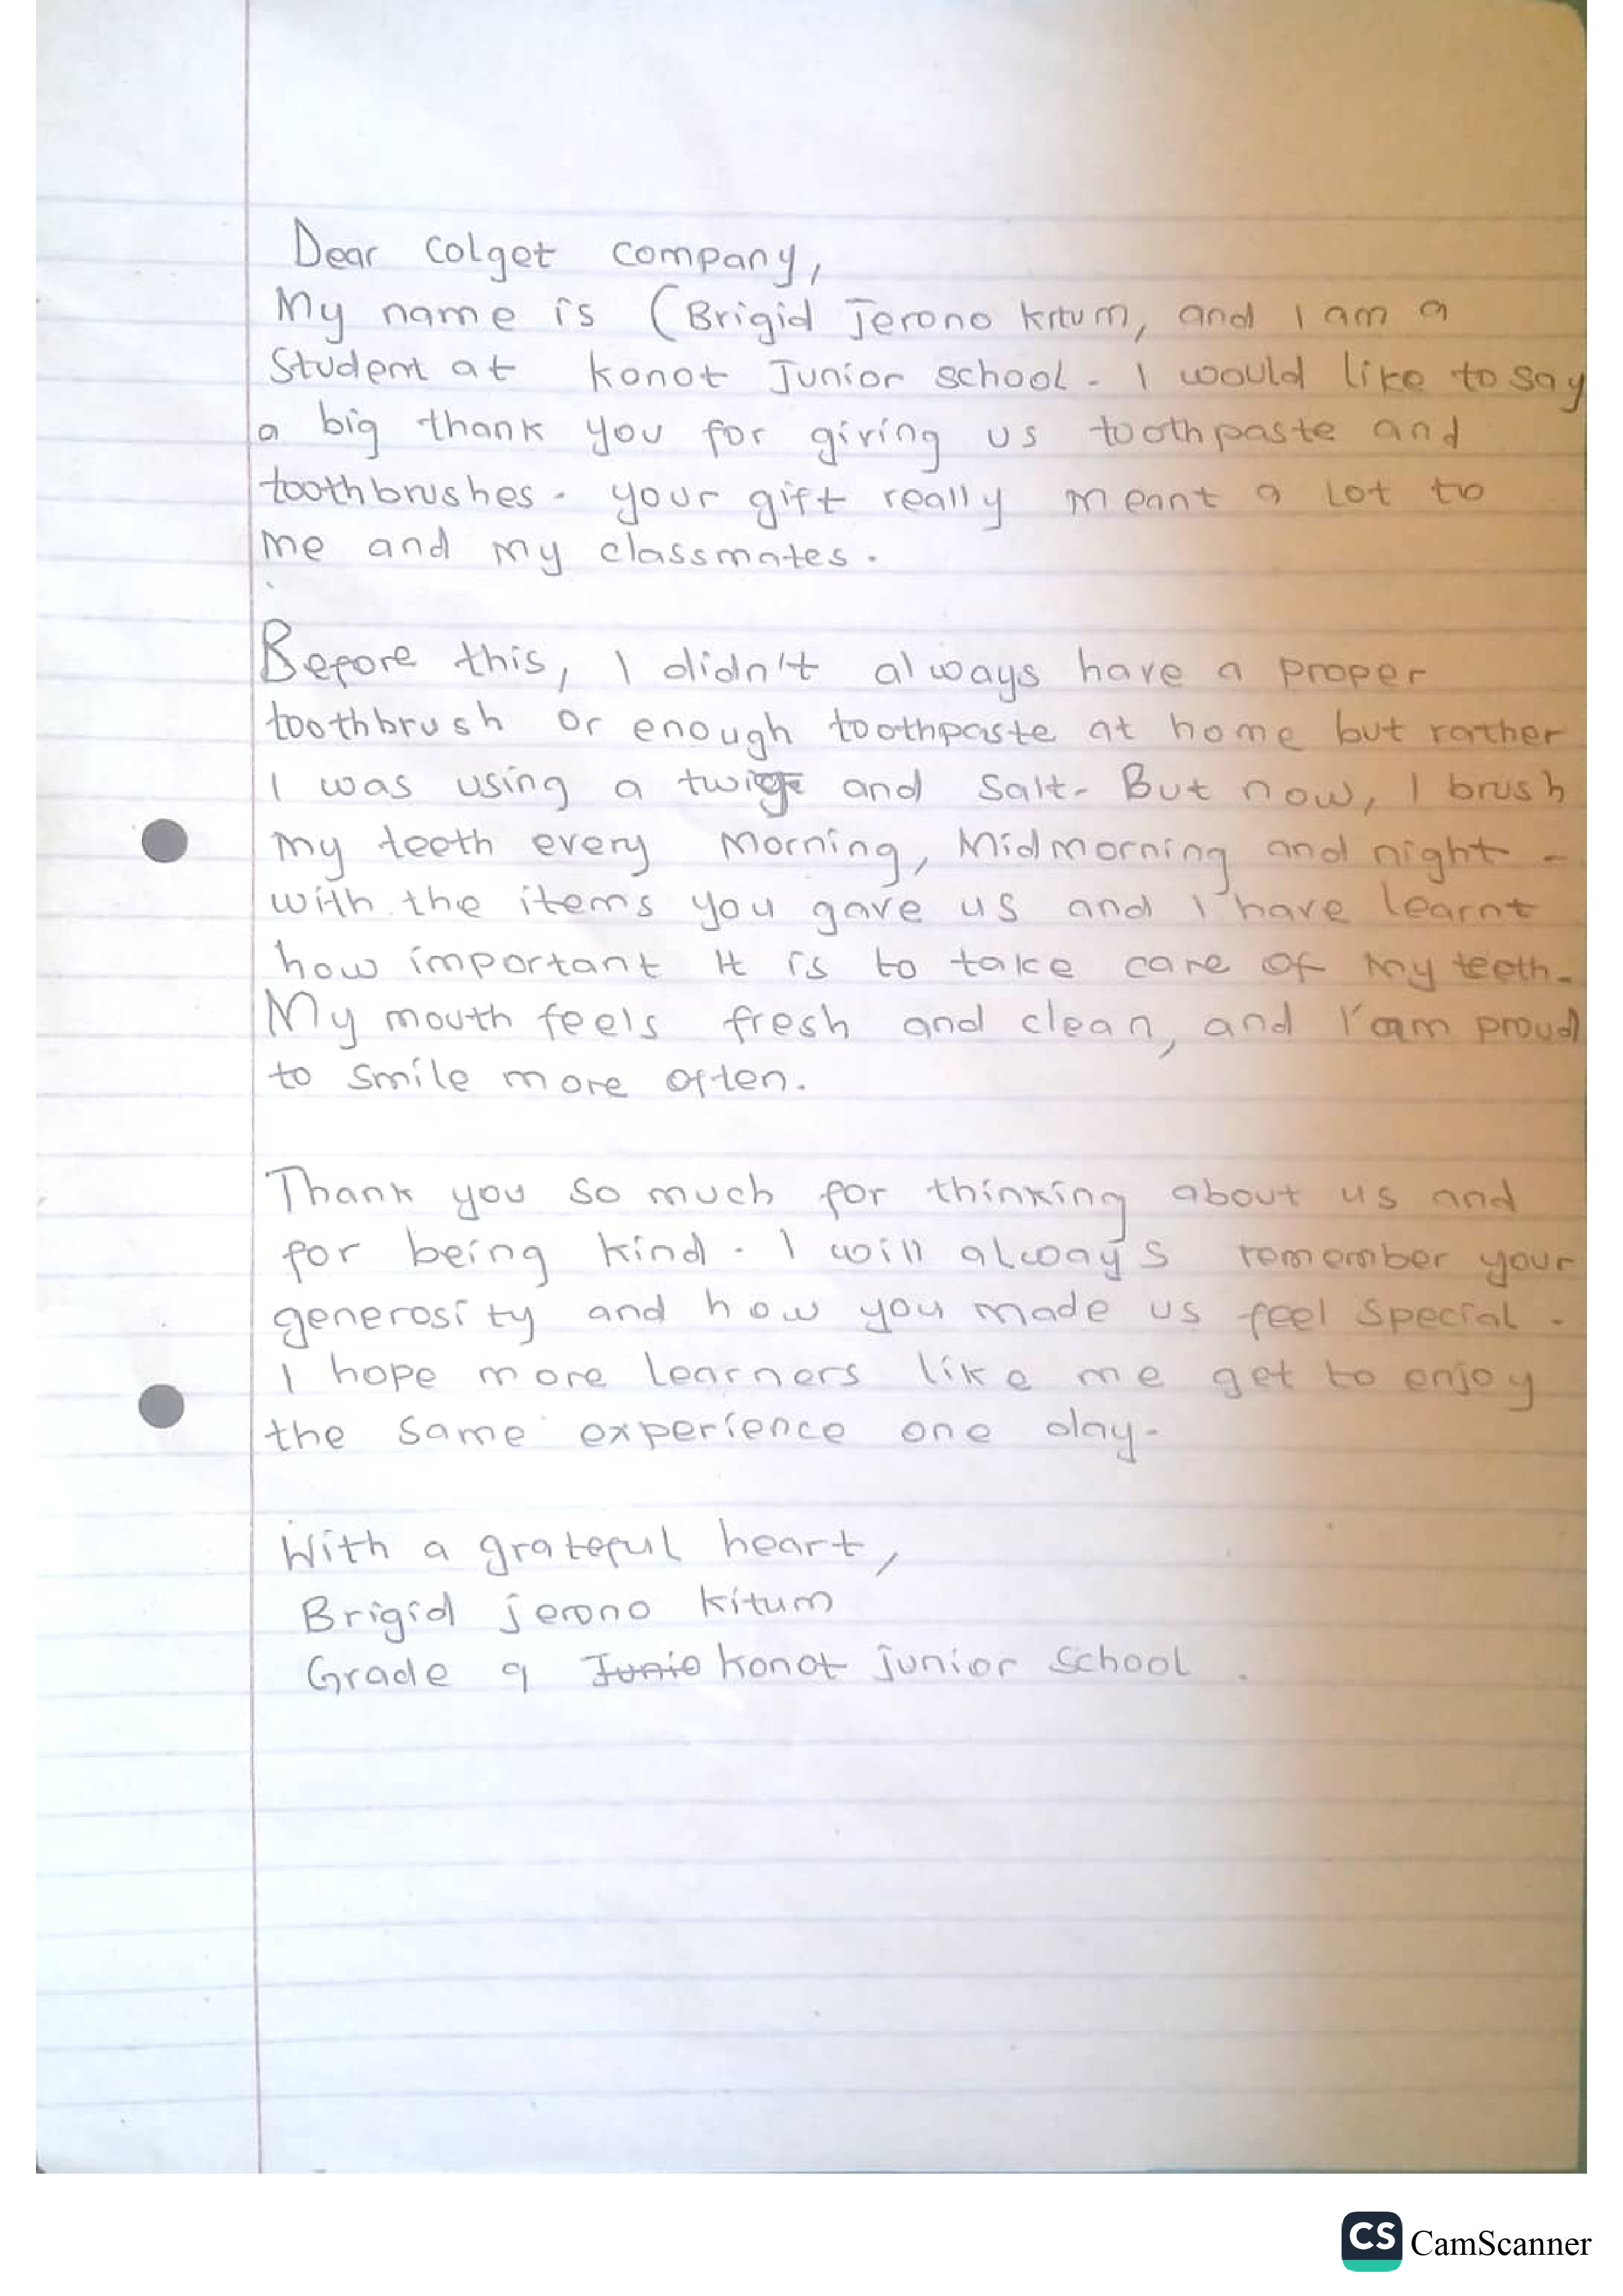 Dear Colget company,
My name is (Brigid Jerono kitum, and I am a
Student at Konot Junior school. I would like to say
a big thank you for giving us toothpaste and
toothbrushes. your gift really meant a Lot to
me and my classmates.
Before this, I didn't always have a proper
toothbrush or enough toothpaste at home but rather
I was using a twig and salt. But now, I brush
my teeth every morning, Midmorning and night -
with the items you gave us and I have learnt
how important it is to take care of my teeth.
My mouth feels fresh and clean, and I'am proud
to smile more often.
Thank you so much for thinking about us and
for being kind. I will always remember your
generosity and how you made us feel special.
I hope more learners like me get to enjoy
the same experience one day.
With a grateful heart,
Brigid jerono Kitum
Grade 9 Junio Konot junior school.
CS CamScanner